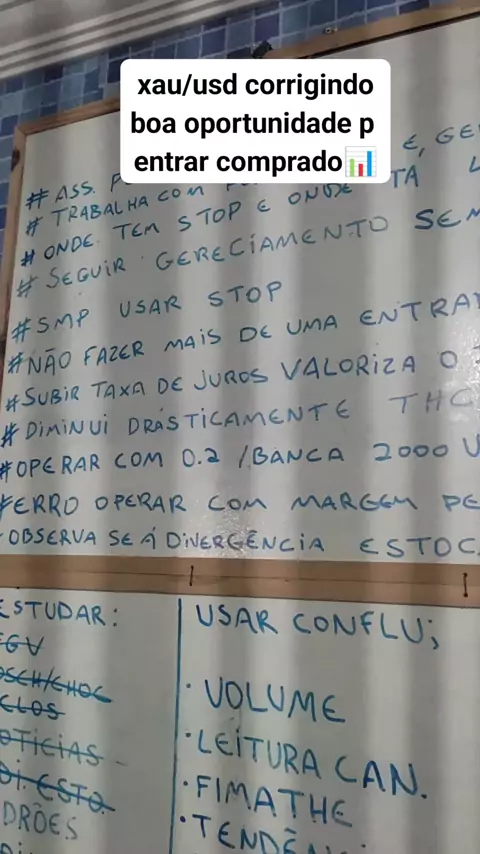 xau/usd corrigindo
boa oportunidade p
entrar comprado📊
# ASS. E, GE
# TRABALHA COM
# ONDE TEM STOP E ONDE TA L
# SEGUIR GERECIAMENTO SEM
#SMP USAR STOP
#NÃO FAZER MAIS DE UMA ENTRA
#SUBIR TAXA DE JUROS VALORIZA O
# DIMINUI DRÁSTICAMENTE THC
#OPERAR COM 0.2 /BANCA 2000 U
ERRO OPERAR COM MARGEM PE
OBSERVA SE Á DIVERGÊNCIA ESTOC
ESTUDAR:
EGV
OSCH/CHOC
CLOS
OTICIAS
DI. ESTO.
DRÕES
USAR CONFLU;
· VOLUME
· LEITURA CAN.
· FIMATHE
· TENDÊN